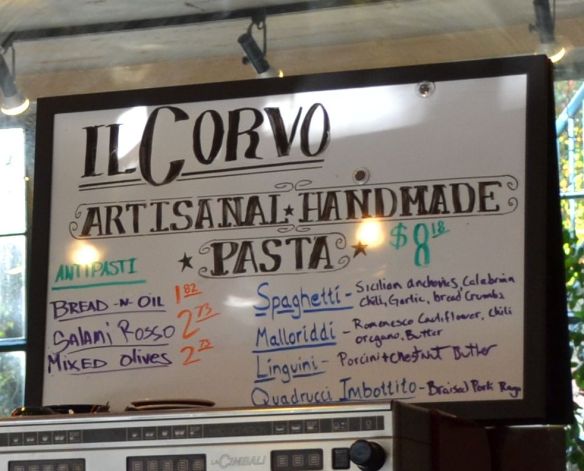 IL CORVO
ARTISANAL ★ HANDMADE
★ PASTA ★ $8.18
ANTIPASTI
BREAD -N- OIL 1.82
Salami Rosso 2.73
Mixed Olives 2.73
Spaghetti - Sicilian anchovies, Calabrian
chili, Garlic, bread Crumbs
Malloriddi - Romenesco Cauliflower, chili
oregano, Butter
Linguini - Porcini + Chestnut Butter
Quadrucci Imbottito - Braised Pork Ragu
LA CIMBALI